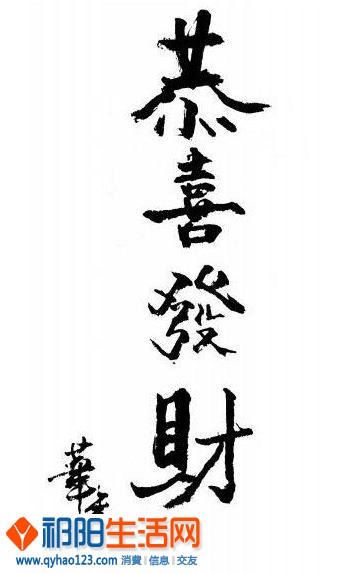 恭喜發財
華
祁阳生活网
www.qyhao123.com 消費 信息 交友